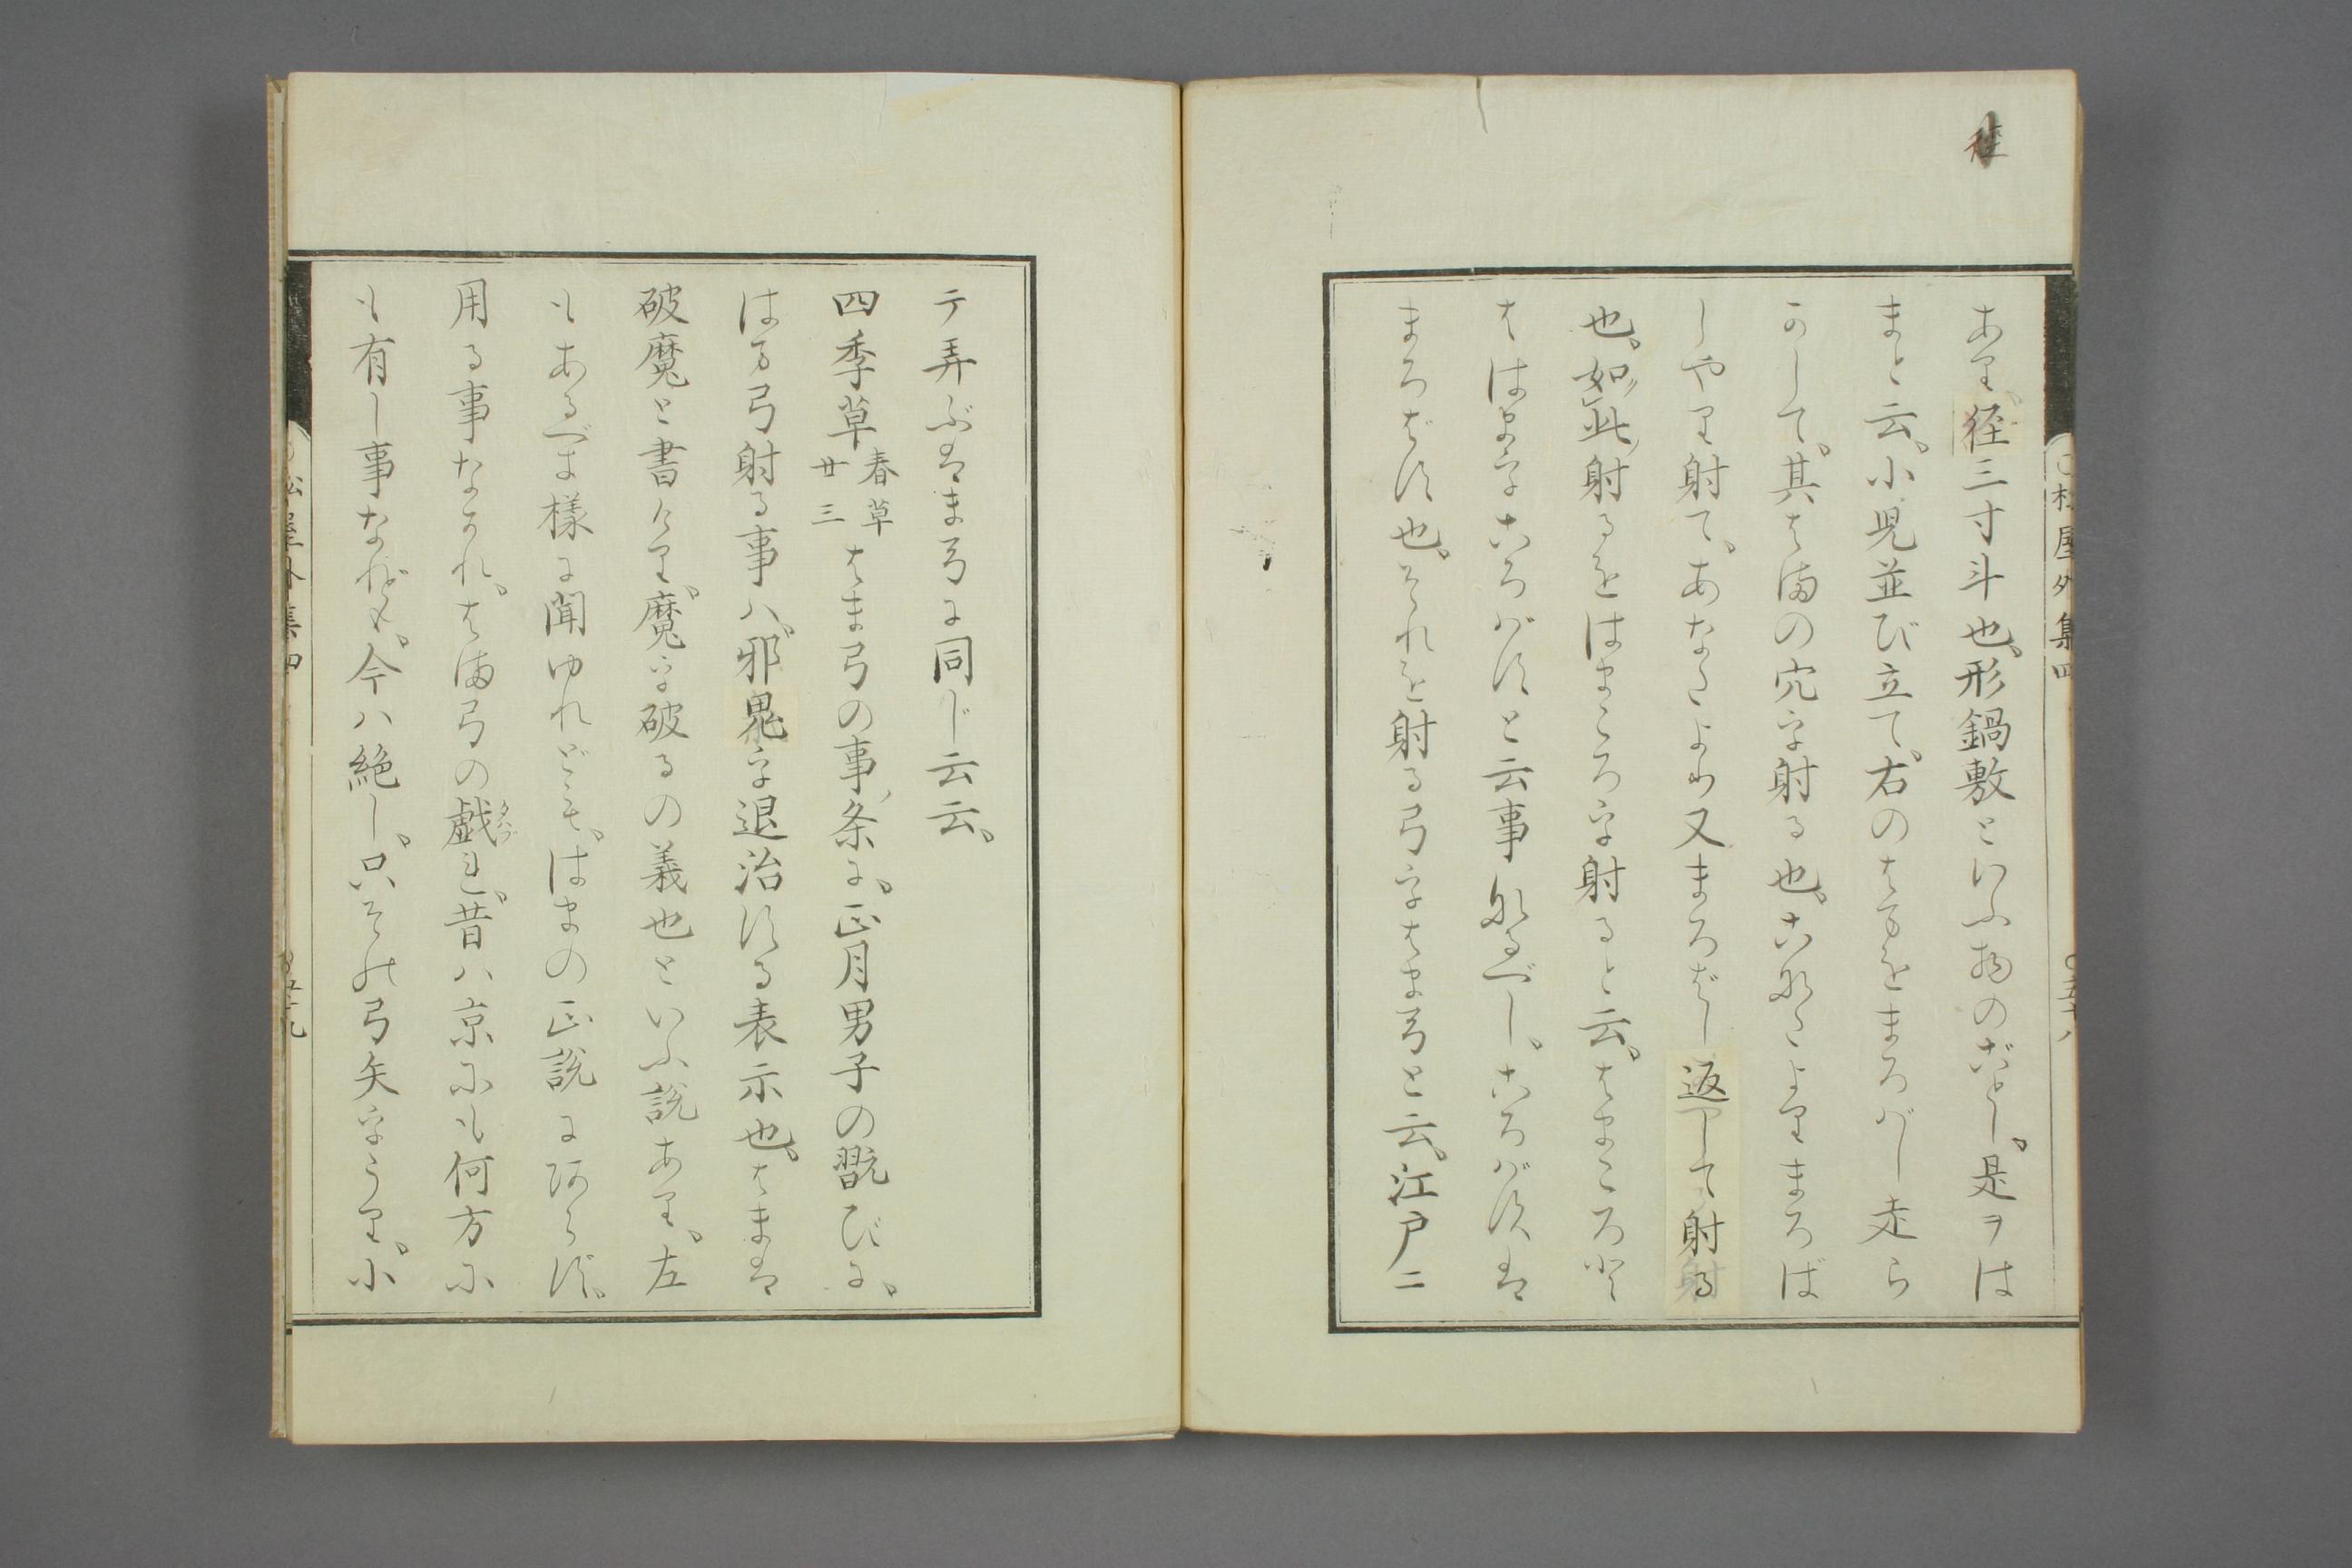 径
あり、径三寸斗也、形鍋敷といふ物のごとし。是ヲは
まと云。小児並び立て。右のはまをまろばし走ら
かして。其はまの穴を射る也。こなたよりまろば
しやり射て、あなたより又まろばし返して射る
也。如此射るをはまころを射ると云。はまころと
ははまをころばすと云事なるべし。ころばすは
まろばす也。それを射る弓をはま弓と云。江戸ニ
テ弄ぶはま弓に同じ云云。
四季草春草廿三はま弓の事条に。正月男子の翫びに。
はま弓射る事ハ。邪鬼を退治する表示也。はまは
破魔と書けり。魔を破るの義也といふ説あり。左
もあるべき様に聞ゆれども。はまの正説にあらず。
用る事なかれ。はま弓の戯れ。昔ハ京にも何方に
も有し事なれども。今ハ絶し。只その弓矢をうり。小
松屋外集四
松屋外集四